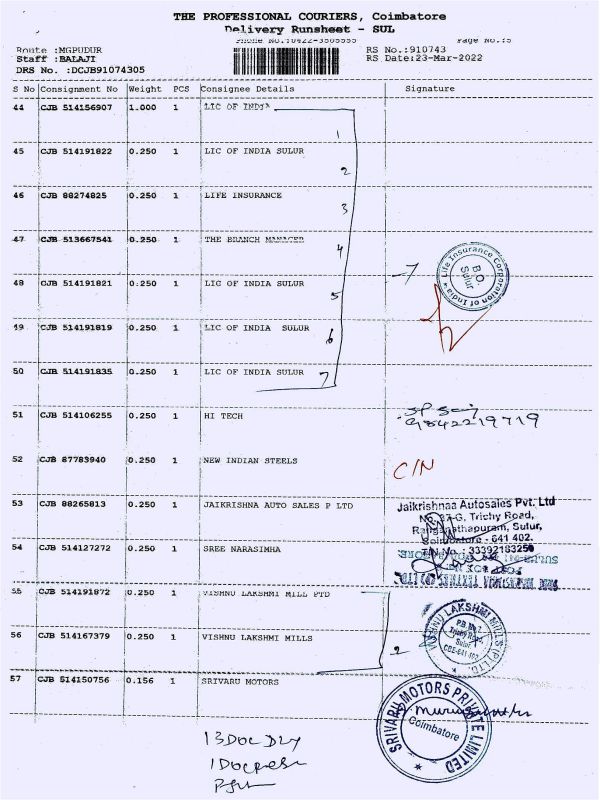 THE PROFESSIONAL COURIERS, Coimbatore
Delivery Runsheet - SUL
Page No.15
Route :MGPUDUR
RS No.:910743
Staff :BALAJI
RS Date:23-Mar-2022
DRS No. :DCJB91074305
S No Consignment No Weight PCS Consignee Details Signature
44 CJB 514156907 1.000 1 LIC OF INDIA
1
45 CJB 514191822 0.250 1 LIC OF INDIA SULUR
2
46 CJB 88274825 0.250 1 LIFE INSURANCE
3
47 CJB 513667541 0.250 1 THE BRANCH MANAGER
4
Life Insurance Corporation of India
B.O.
Sulur
7
48 CJB 514191821 0.250 1 LIC OF INDIA SULUR
5
49 CJB 514191819 0.250 1 LIC OF INDIA SULUR
6
50 CJB 514191835 0.250 1 LIC OF INDIA SULUR 7
51 CJB 514106255 1 HI TECH
9842219719
52 CJB 87783940 0.250 1 NEW INDIAN STEELS
C/N
53 CJB 88265813 0.250 1 JAIKRISHNA AUTO SALES P LTD
Jaikrishnaa Autosales Pvt. Ltd
No.27-G, Trichy Road,
Ranganathapuram, Sulur,
Coimbatore - 641 402.
54 CJB 514127272 0.250 1 SREE NARASIMHA
55 CJB 514191872 0.250 1 VISHNU LAKSHMI MILL PTD
VISHNU LAKSHMI MILLS (P) LTD.
Trichy Road,
Sulur
CBE-641 402
56 CJB 514167379 0.250 1 VISHNU LAKSHMI MILLS
2
57 CJB 514150756 0.156 1 SRIVARU MOTORS
SRIVARU MOTORS PRIVATE LIMITED
Coimbatore
13 Doc Dly